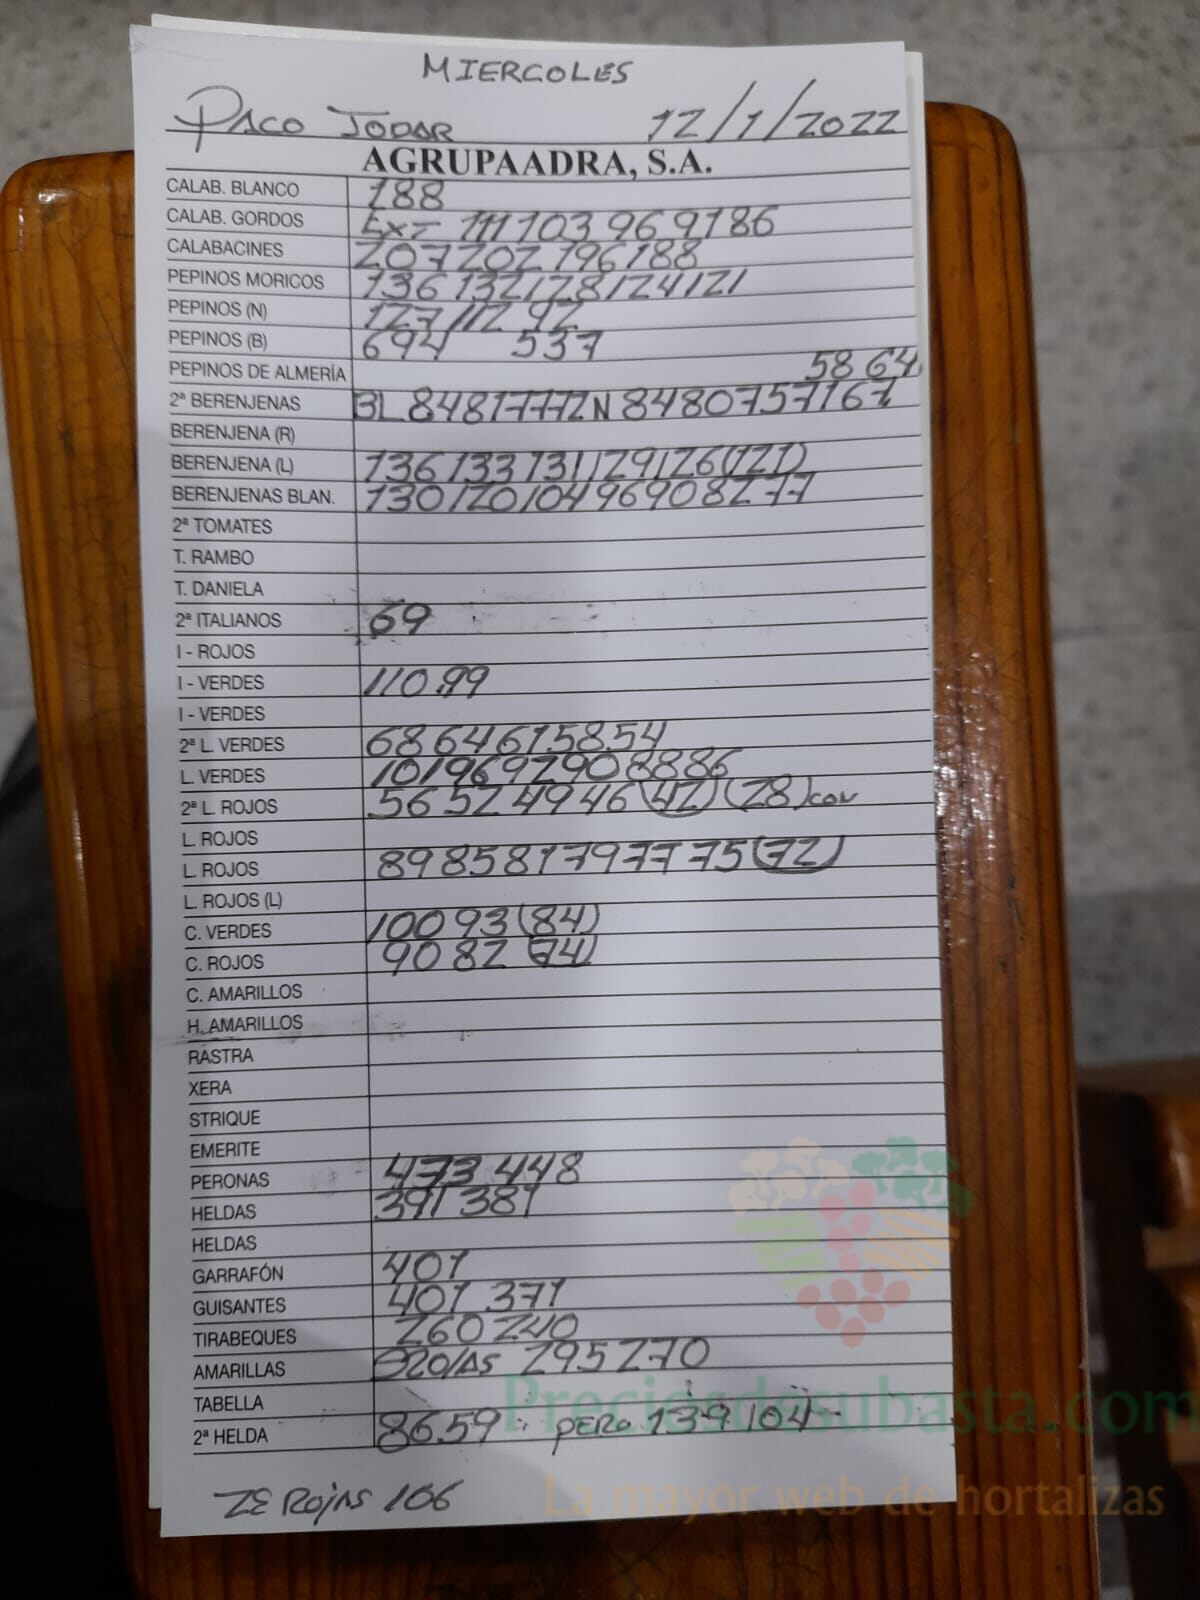 MIERCOLES
PACO JODAR 12/1/2022
AGRUPAADRA, S.A.
CALAB. BLANCO 188
CALAB. GORDOS Ext 111 103 96 91 86
CALABACINES 207 202 196 188
PEPINOS MORICOS 136 132 128 124 121
PEPINOS (N) 127 112 92
PEPINOS (B) 694 537
PEPINOS DE ALMERÍA 58 64
2ª BERENJENAS BL 84 81 77 72 N 84 80 75 71 67
BERENJENA (R)
BERENJENA (L) 136 133 131 129 126 (121)
BERENJENAS BLAN. 130 120 104 96 90 82 77
2ª TOMATES
T. RAMBO
T. DANIELA
2ª ITALIANOS 69
I - ROJOS
I - VERDES 110.99
I - VERDES
2ª L. VERDES 68 64 61 58 54
L. VERDES 101 96 92 90 88 86
2ª L. ROJOS 56 52 49 46 (42) (28) con
L. ROJOS
L. ROJOS 89 85 81 79 77 75 (72)
L. ROJOS (L)
C. VERDES 100 93 (84)
C. ROJOS 90 82 (74)
C. AMARILLOS
H. AMARILLOS
RASTRA
XERA
STRIQUE
EMERITE
PERONAS 473 448
HELDAS 391 381
HELDAS
GARRAFÓN 401
GUISANTES 401 371
TIRABEQUES 260 240
AMARILLAS 295 270
TABELLA
2ª HELDA 86.59 pero 139 104
ZE ROJAS 106
Preciosdesubasta.com
La mayor web de hortalizas